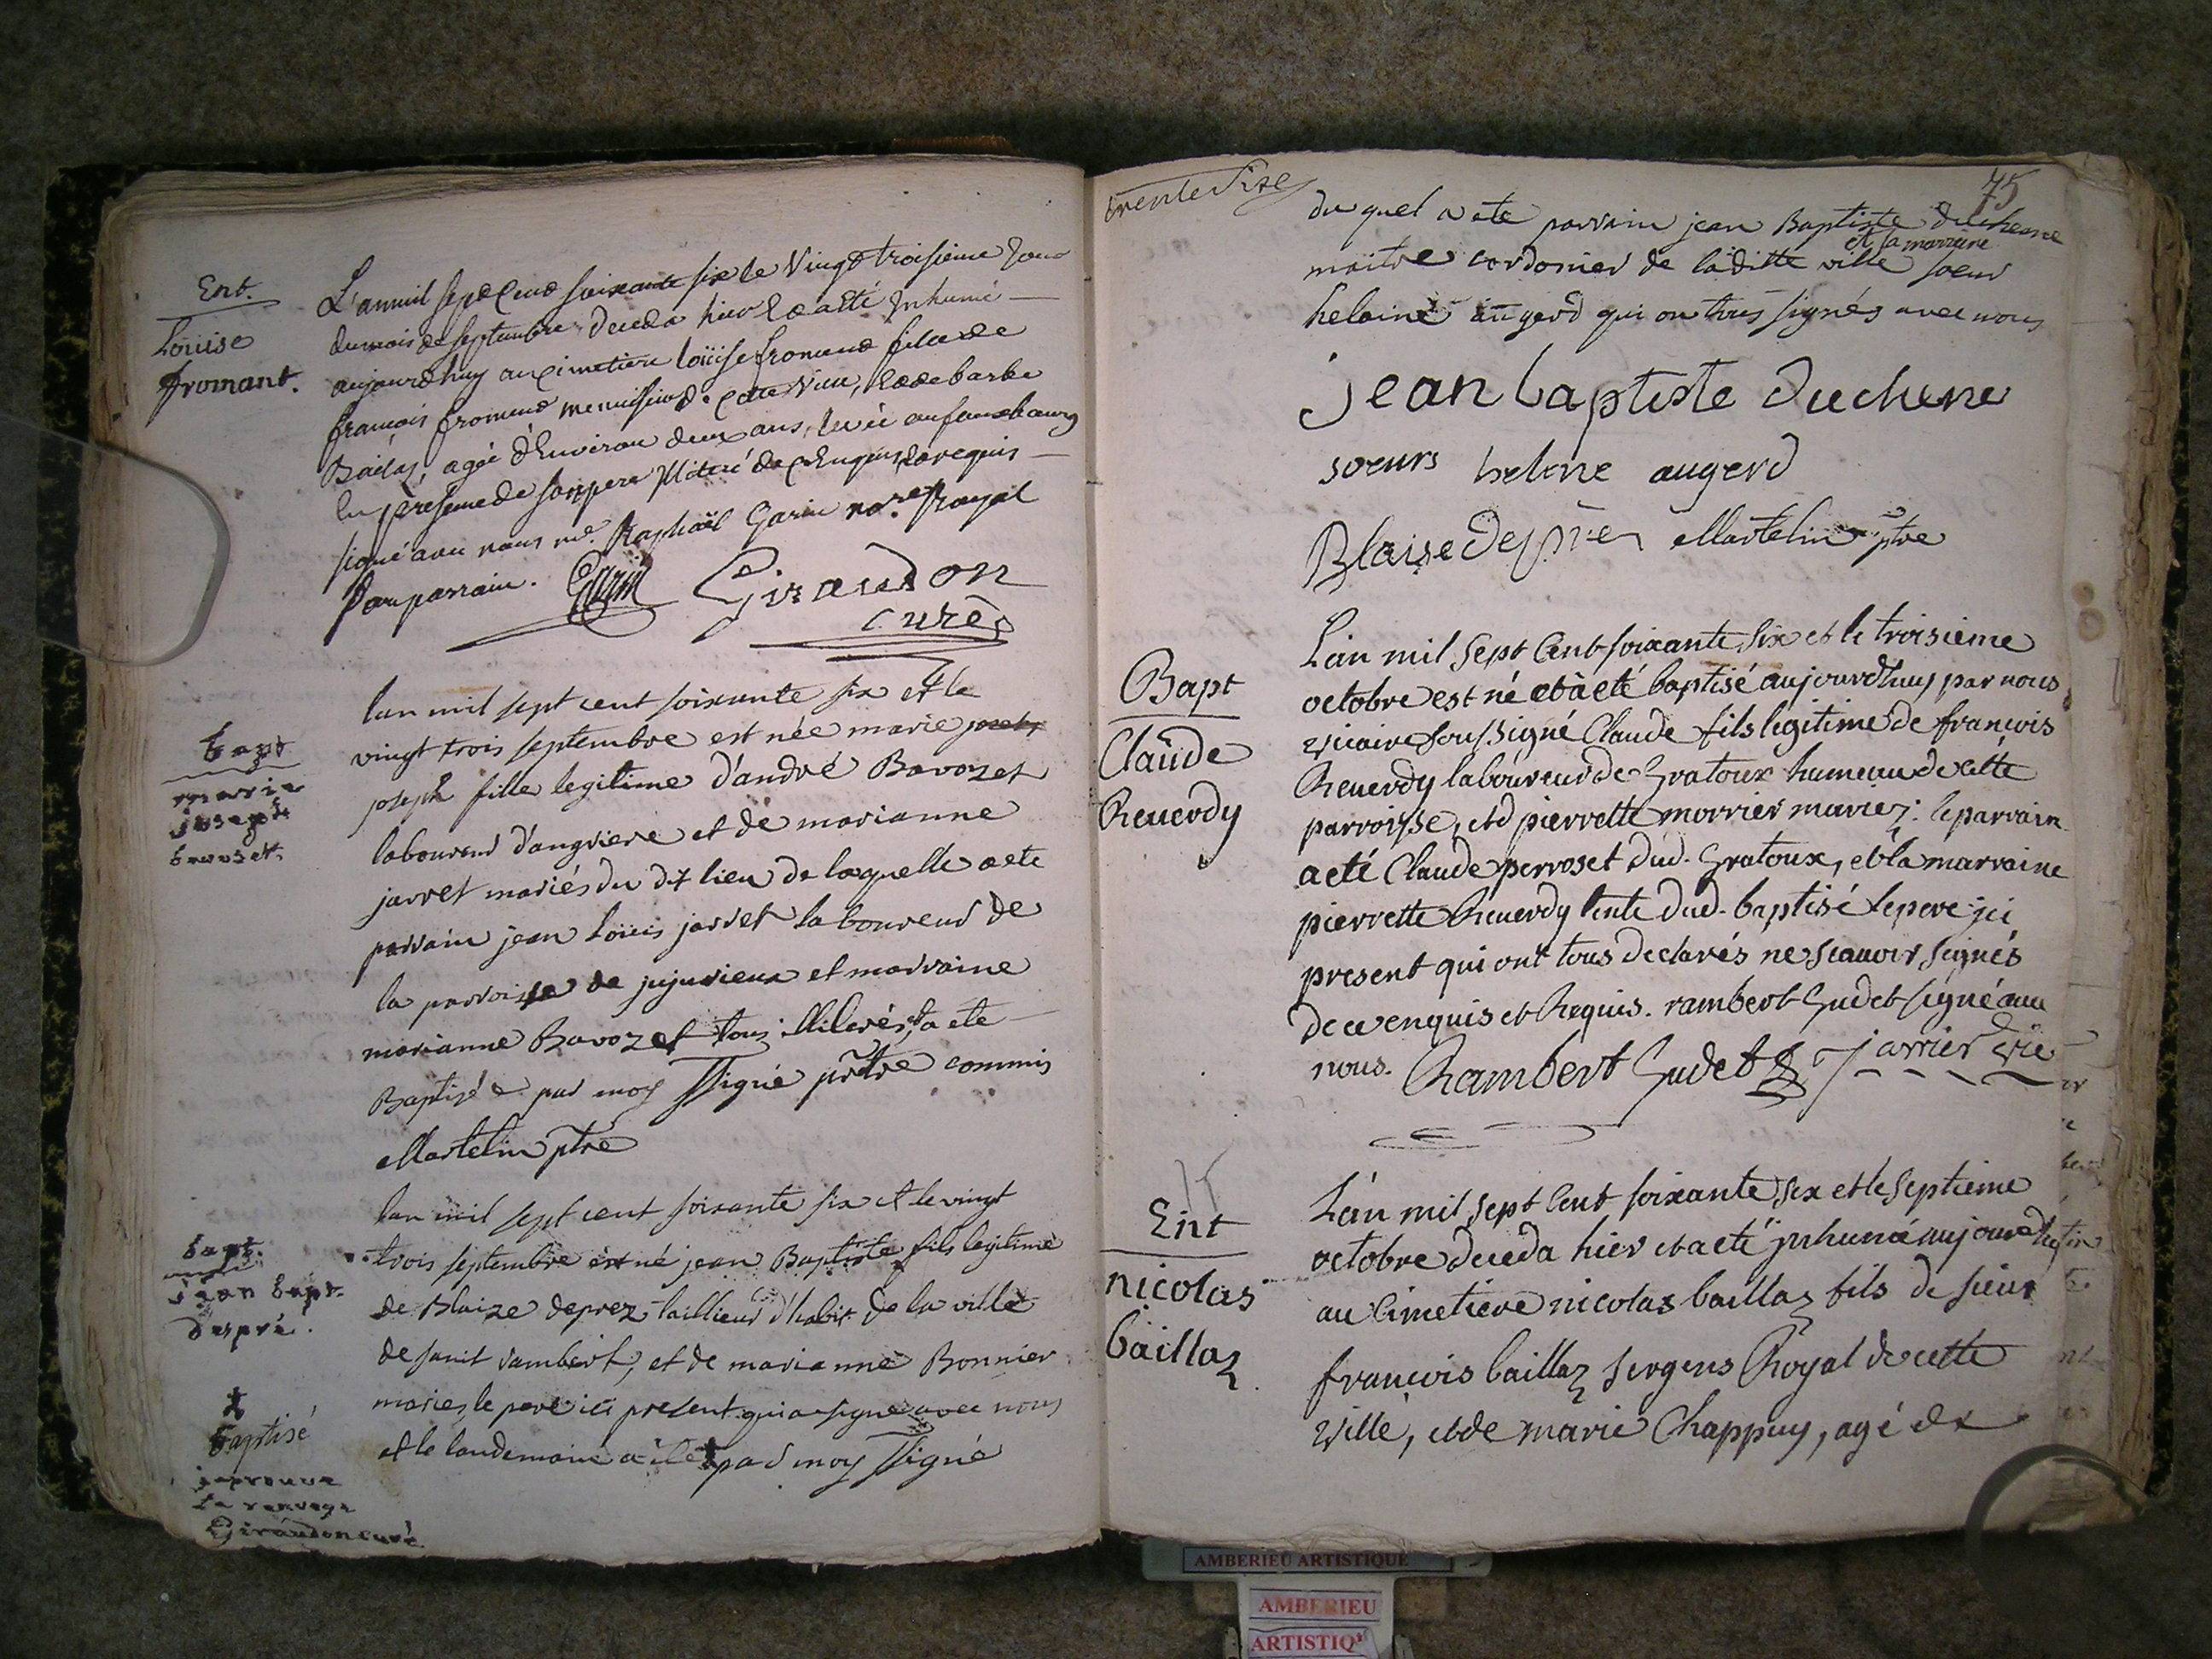 Ent.
Louise
fromant.
L'an mil sept Cens soixante six le Vingt troisieme Jour
du mois de septembre deceda hier Et a Eté Inhumé
aujourdhuy au Cimetiere loüise froment fille de
francois froment menuisier de cette Ville, Et de barbe
Baillaz, agée d'Environ deux ans,
En presence de son pere Illiteré de Enquis Et requis
signé avec nous me. Raphaël Garin nore. Royal
son parrain. Garin Giraudon
curé
bapt
marie
joseph
bavoset.
lan mil sept cent soixante six et le
vingt trois septembre est née marie
joseph fille legitime d'andré Bavozet
laboureur d'angriere et de marianne
jarret mariés du dit lieu de laquelle a ete
parrain jean loüis jarret laboureur de
la parroisse de jujurieux et marraine
marianne Bavozet tous illiterés, et a ete
Baptisée par moy ssigné prètre commis
Martelin ptre
bapt.
jean bapt.
despré.
lan mil sept cent soixante six et le vingt
trois septembre est né jean Baptiste fils legitime
de Blaize deprez taillieur d'habit de la ville
de saint rambert, et de marianne Bonnier
mariés, le pere ici present qui a signé avec nous
et le landemain a été + par moy ssigné
+
baptisé
japrouve
le renvoye
Giraudon curé
trente Sixe
75
du quel a ete parrain jean Baptiste duchesne
et sa marraine
maitre cordonier de laditte ville soeur
helaine augerd qui on tous signés avec nous
jean baptiste duchene
soeurs helene augerd
Blaise Desprèz Martelin ptre
Bapt
Claude
Reuerdy
L'an mil sept Cent soixante six et le troisieme
octobre est né et à eté baptisé aujourdhuy par nous
vicaire soussigné Claude fils legitime de francois
Reuerdy laboureur de Gratoux hameau de cette
parroisse, et d pierrette morrier mariez: le parrain
a eté Claude perroset dud. Gratoux, et la marraine
pierrette Reuerdy tente dud. baptisé le pere ici
present qui ont tous declarés ne scauoir signés
de ce enquis et Requis. rambert Gudet signé avec
nous. Rambert Gudet Jarrier vic
Ent
nicolas
baillaz
L'an mil sept Cent soixante six et le septieme
octobre deceda hier et a eté jnhumé aujourdhuy
au Cimetiere nicolas baillaz fils de sieur
francois baillaz sergens Royal de cette
Ville, et de marie Chappuy, agé de
AMBERIEU ARTISTIQUE
AMBERIEU
ARTISTIQ